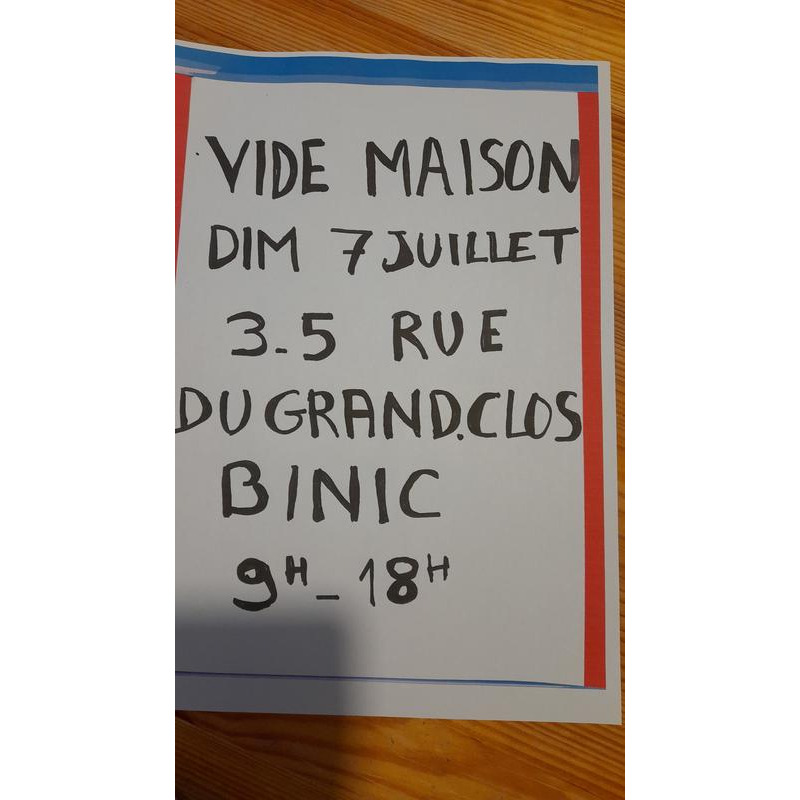 VIDE MAISON
DIM 7 JUILLET
3-5 RUE
DU GRAND.CLOS
BINIC
9H-18H